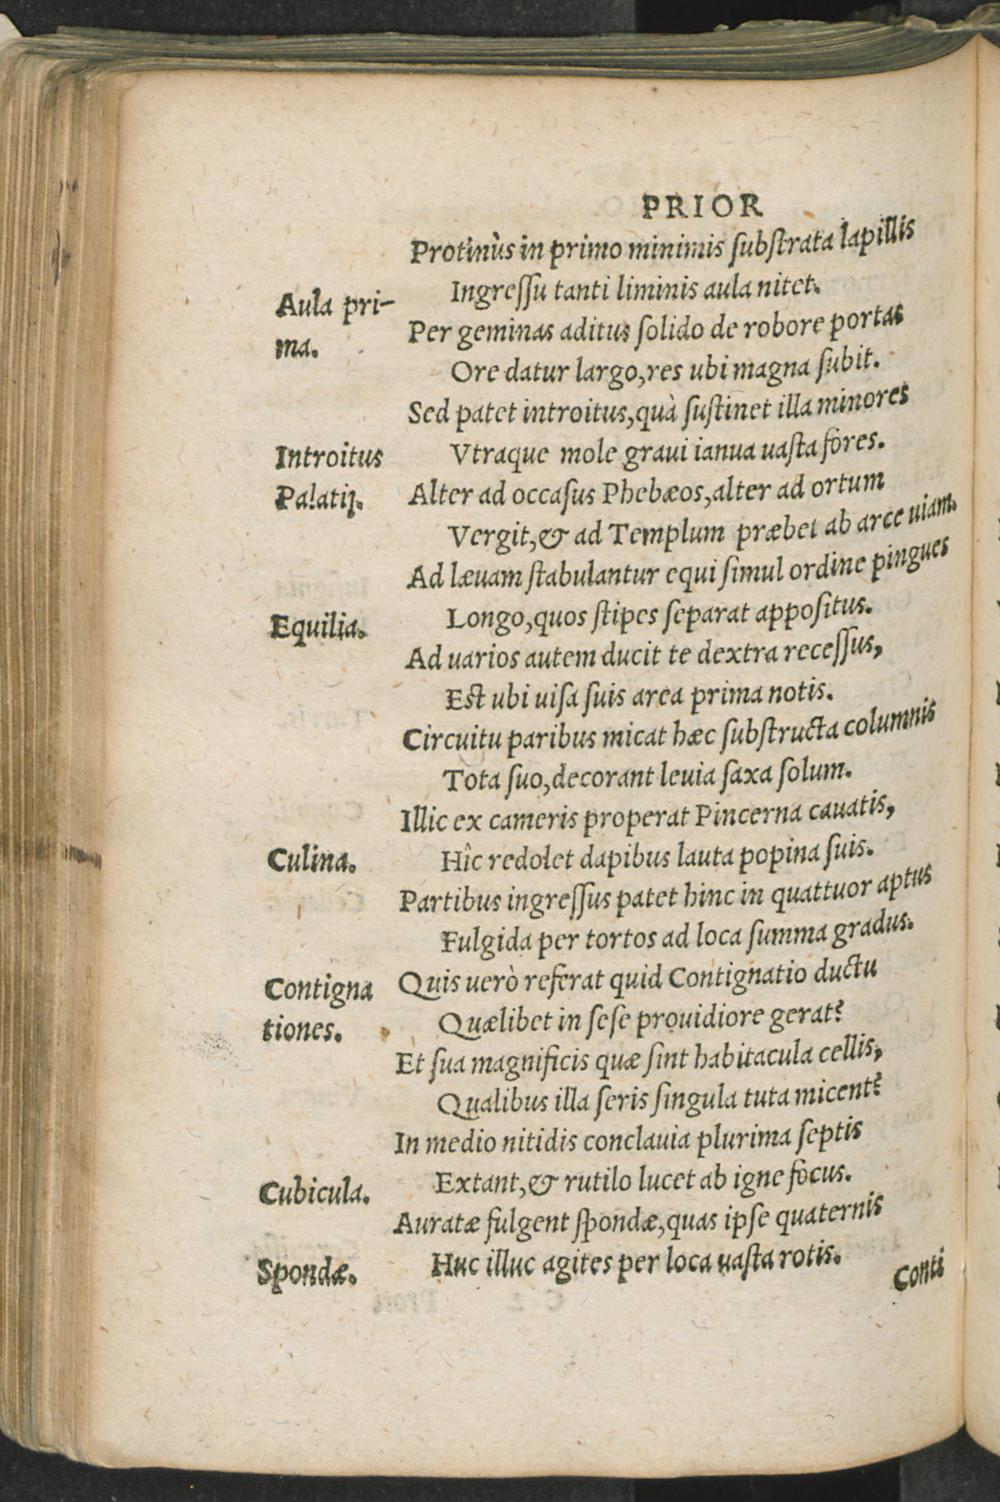 PRIOR
Protinùs in primo minimis ſubſtrata lapillis
Ingreſſu tanti liminis aula nitet.
Aula pri-
ma.
Per geminas aditus ſolido de robore portas
Ore datur largo,res ubi magna ſubit.
Sed patet introitus,quà ſuſtinet illa minores
Introitus
Vtraque mole graui ianua uaſta fores.
Palatij.
Alter ad occaſus Phebæos,alter ad ortum
Vergit,& ad Templum præbet ab arce uiam.
Ad læuam ſtabulantur equi ſimul ordine pingues
Equilia.
Longo,quos ſtipes ſeparat appoſitus.
Ad uarios autem ducit te dextra receſſus,
Eſt ubi uiſa ſuis area prima notis.
Circuitu paribus micat hæc ſubſtructa columnis
Tota ſuo,decorant leuia ſaxa ſolum.
Illic ex cameris properat Pincerna cauatis,
Culina.
Hîc redolet dapibus lauta popina ſuis.
Partibus ingreſſus patet hinc in quattuor aptus
Fulgida per tortos ad loca ſumma gradus.
Contigna
tiones.
Quis uerò referat quid Contignatio ductu
Quælibet in ſeſe prouidiore gerat?
Et ſua magnificis quæ ſint habitacula cellis,
Qualibus illa ſeris ſingula tuta micent?
In medio nitidis conclauia plurima ſeptis
Cubicula.
Extant,& rutilo lucet ab igne focus.
Auratæ fulgent ſpondæ,quas ipſe quaternis
Spondæ.
Huc illuc agites per loca uaſta rotis.
Conti